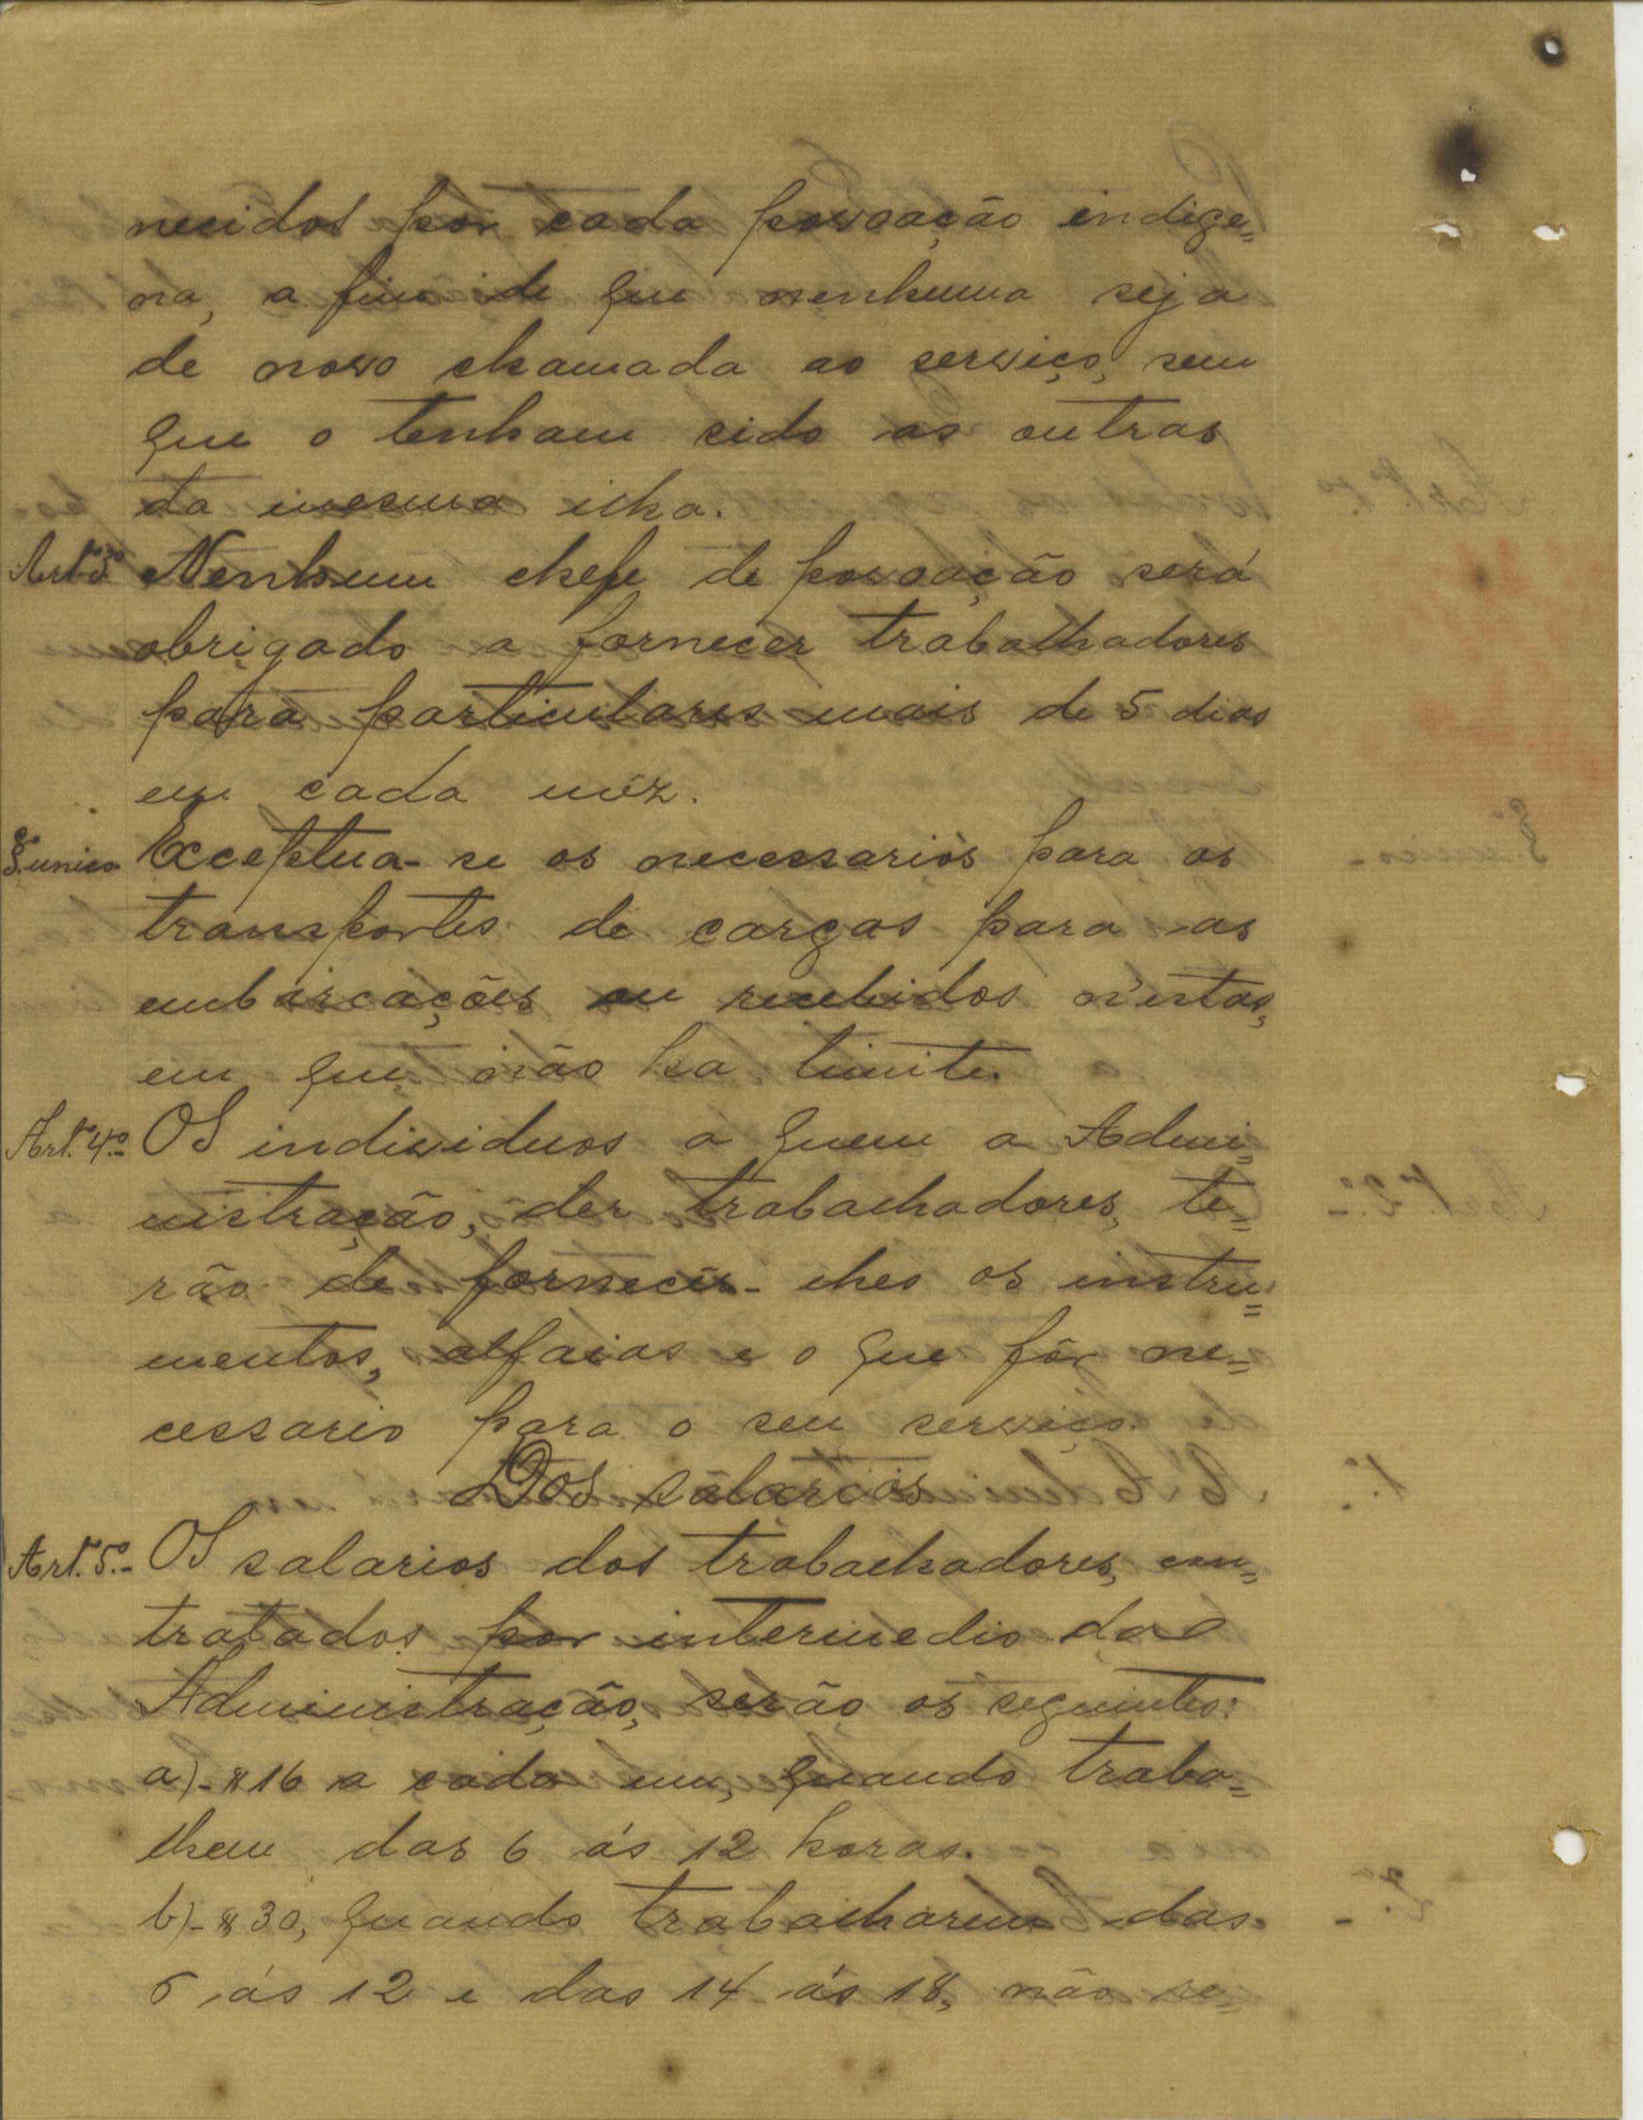 necidos por cada povoação indige=
na, a fim de que nenhuma seja
de novo chamada ao serviço, sem
que o tenham sido as outras
da mesma ilha.
Art.º 3º Nenhum chefe de povoação será
obrigado a fornecer trabalhadores
para particulares mais de 5 dias
em cada mêz.
§ unico Exceptua-se os necessarios para os
transportes de cargas para as
embarcações ou recebidos n'estas,
em que não ha limite.
Art.º 4.º- Os individuos a quem a Admi=
nistração, der trabalhadores, te=
rão de fornecer-lhes os instru=
mentos, alfaias e o que fôr ne=
cessario para o seu serviço.
Dos salarios
Art.º 5.º- Os salarios dos trabalhadores, con=
tratados por intermedio da
Administração, serão os seguintes:
a)-$16 a cada um, quando traba=
lhem das 6 ás 12 horas.
b)-$30, quando trabalharem das
6 ás 12 e das 14 ás 18, não se=